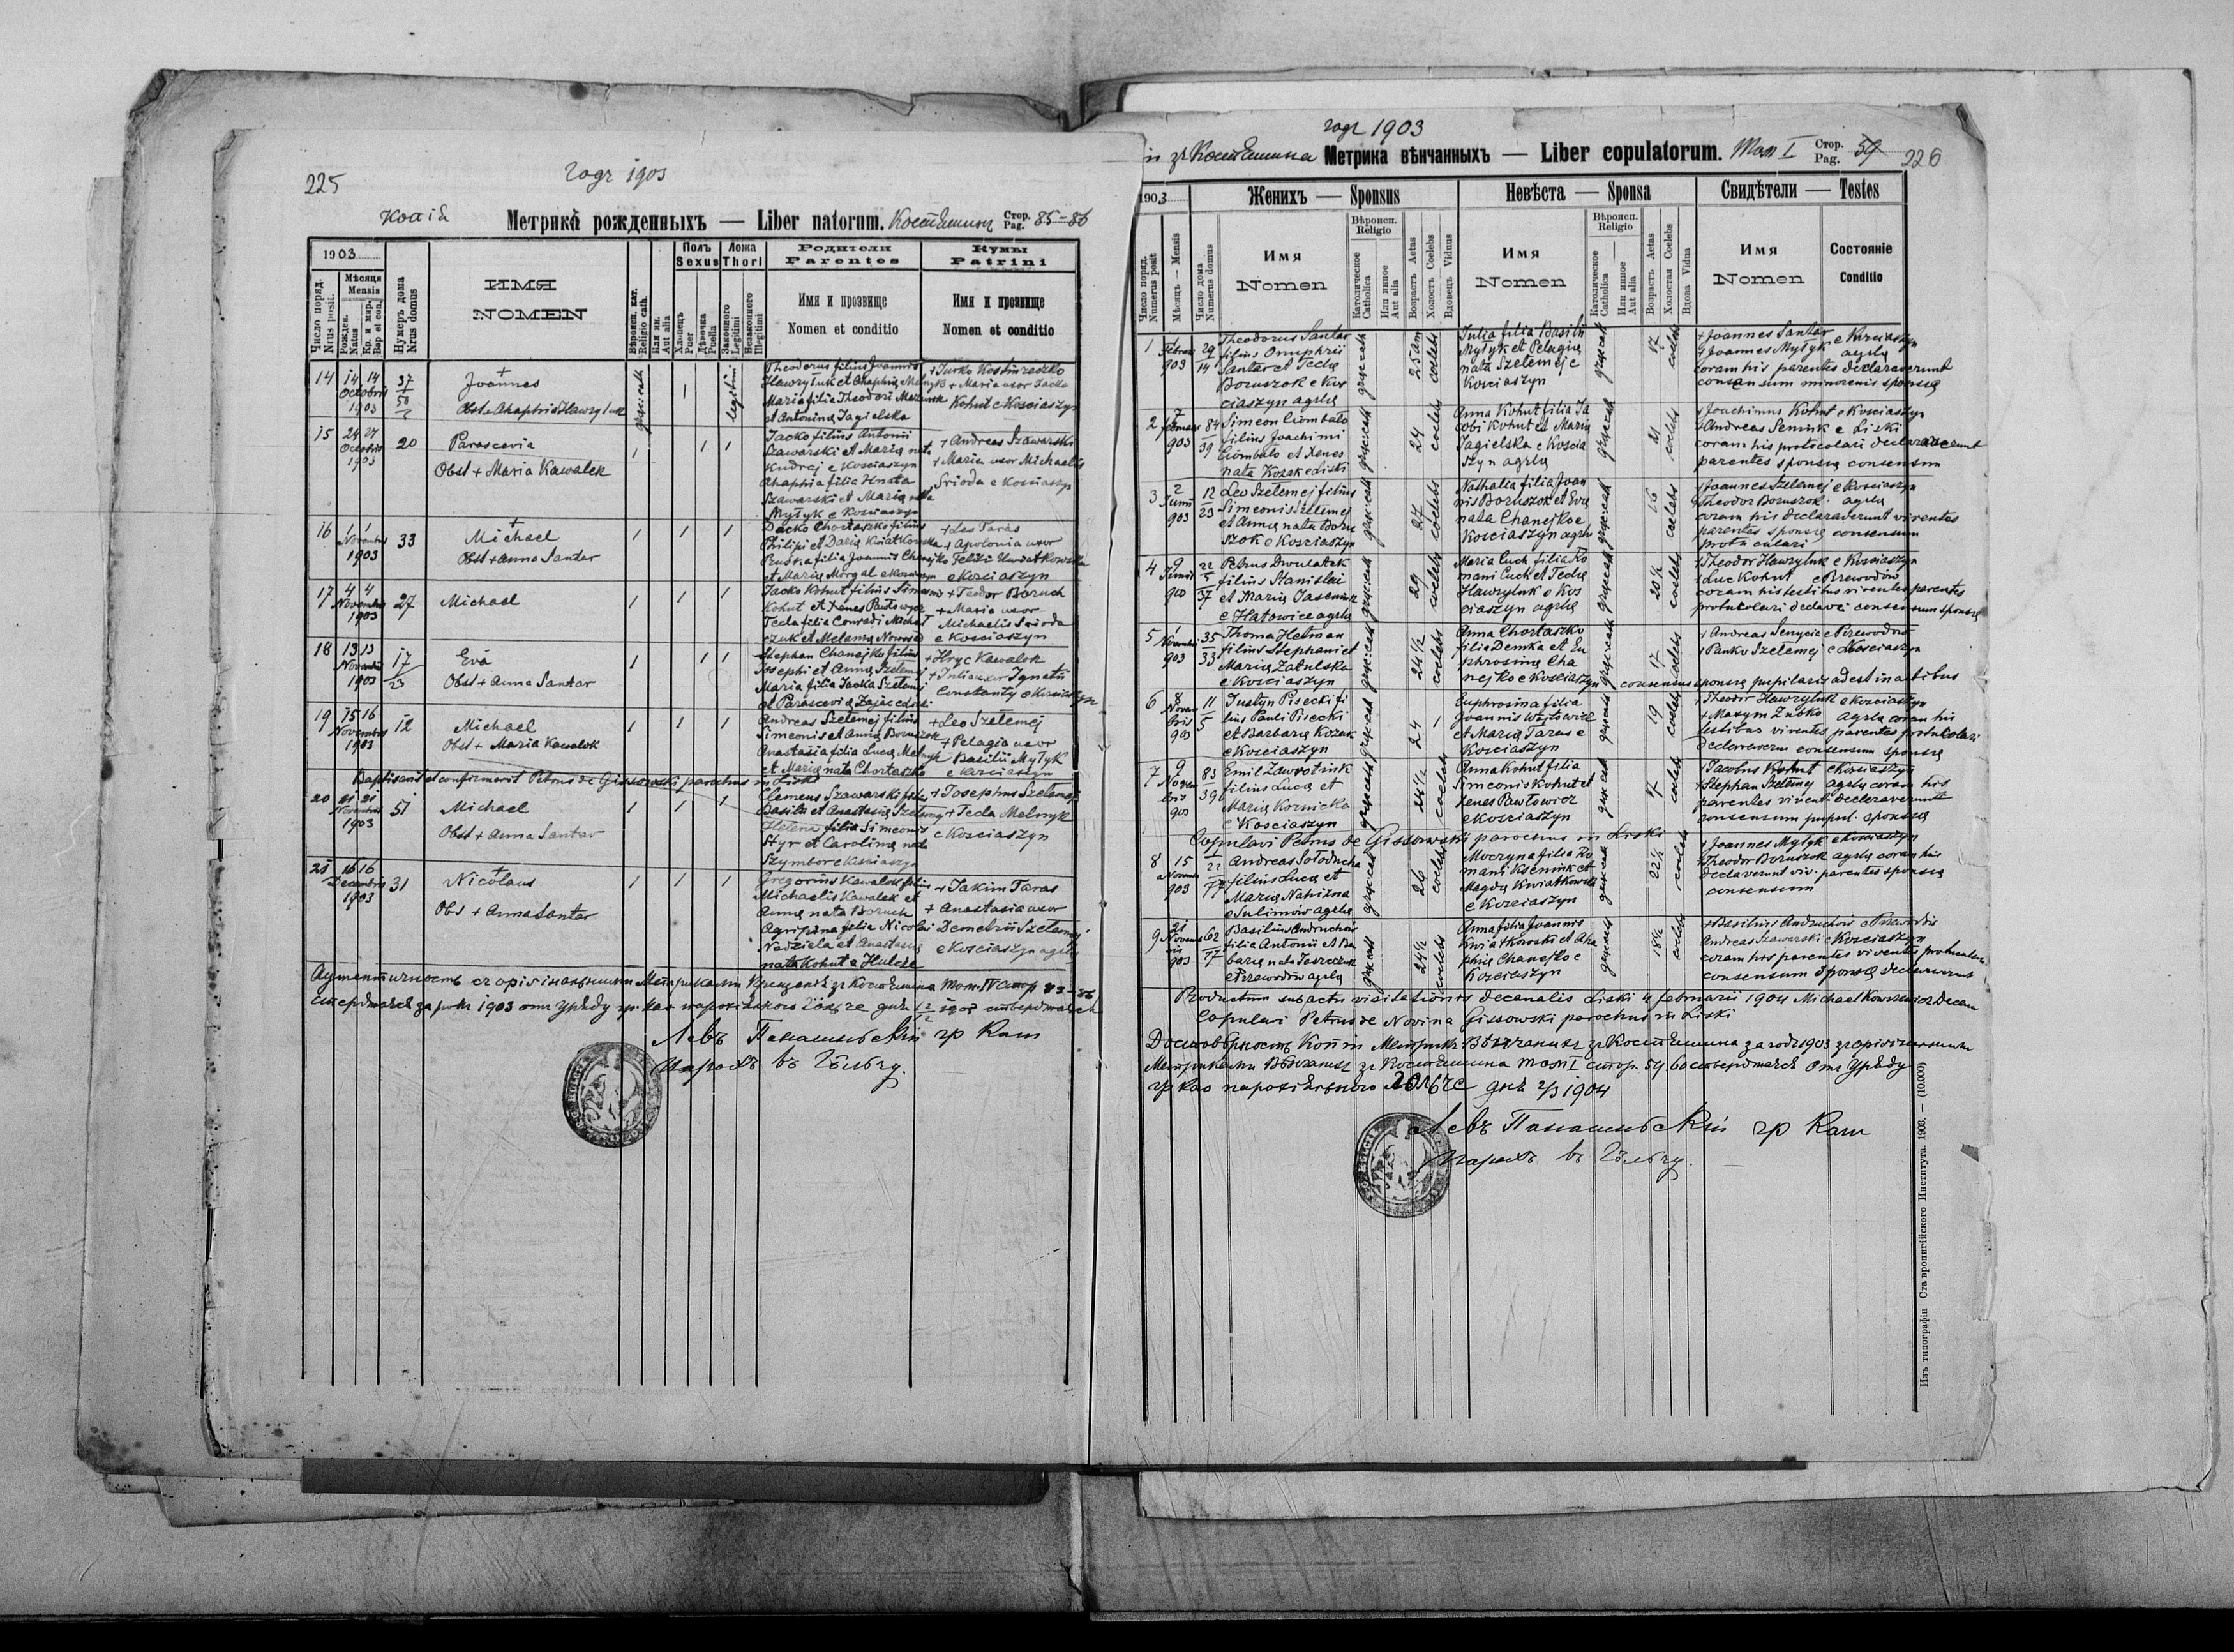 225
годъ 1903
копія
Метрика рожденныхъ — Liber natorum. Костяшинъ Стор. Pag. 85-86
1903
Число поряд. Nrus posit.
Мѣсяця Mensis
Рожден. Natus
Кр. и мир. Bap et conf.
Нумеръ дома Nrus domus
ИМЯ
NOMEN
Вѣроисп. кат. Religio cath.
Или ин. Aut alia
Полъ Sexus
Хлопецъ Puer
Дѣвочка Puella
Ложа Thori
Законного Legitimi
Незаконного Illegitimi
Родители
Parentes
Имя и прозвище
Nomen et conditio
Кумы
Patrini
Имя и прозвище
Nomen et conditio
14
14 14
Octobris
1903
37
50
Joannes
Obst. Ahaphia Hawryluk
gr.-cath
legitimi
Theodorus filius Joannis
Hawryluk et Ahaphia Melnyk
Maria filia Theodori Mazurek
et Antonina Jagielska
+ Jurko Kostiureszko
+ Maria uxor Jacko
Kohut e Kosciaszyn
15
24 27
Octobris
1903
20
Parascevia
Obst + Maria Kawalek
Jacko filius Antonii
Szawarski et Maria nata
Kudraj e Kosciaszyn
Ahaphia filia Hnata
Szawarski et Maria nata
Mytyk e Kosciaszyn
+ Andreas Szawarski
+ Maria uxor Michaelis
Srioda e Kosciaszyn
16
1 1
Novembris
1903
33
Michael
Obst + Anna Santar
Dacko Chortaszko filius
Philipi et Daria Kwiatkowska
Pruska filia Joannis Chanejko
et Maria Morgal e Kosciaszyn
+ Leo Taras
+ Apolonia uxor
Felixi Kwiatkowska
e Kosciaszyn
17
4 4
Novembris
1903
27
Michael
Jacko Kohut filius Simeonis
Kohut et Xenes Pawtowycz
Tecla filia Conradi Michal
czuk et Melania Nowosad
+ Teodor Boruch
+ Maria uxor
Michaelis Srioda
e Kosciaszyn
18
13 13
Novembris
1903
17
23
Eva
Obst + Anna Santar
Stephan Chanejko filius
Josephi et Anna Szełemej
Maria filia Jacka Szełemej
et Parascevia Zając e Liski
+ Hryc Kawalok
+ Julia uxor Ignatii
Constanty e Kosciaszyn
19
15 16
Novembris
1903
12
Michael
Obst + Maria Kawalok
Andreas Szełemej filius
Simeonis et Anna Boruszok
Anastasia filia Luca Melnyk
et Maria nata Chortaszko
+ Leo Szełemej
+ Pelagia uxor
Basilii Mytyk
e Kosciaszyn
Baptisavit et confirmavit Petrus de Gissowski parochus in Liski
20
21 21
Novembris
1903
51
Michael
Obst + Anna Santar
Clemens Szawarski filius
Basilii et Anastasia Szełemej
Helena filia Simeonis
Styr et Carolina nata
Szymbor e Kosciaszyn
+ Josephus Szełemej
+ Tecla Melnyk
e Kosciaszyn
21
16 16
Decembris
1903
31
Nicolaus
Obs + Anna Santar
Gregorius Kawalok filius
Michaelis Kawalek et
Anna nata Boruch
Agripina filia Nicolai
Nedziela et Anastasia
nata Kohut e Hulcze
+ Jakim Taras
+ Anastasia uxor
Demetrii Szełemej
e Kosciaszyn agrla
Аутентичность съ оригінальными Метриками Крещеныхъ зъ Костяшина Том. IV стор 85-86
ствержаеся за рокъ 1903 отъ Уряду гр. кат парохіяльного
Левъ гр Кат
Парохъ въ
годъ 1903
зъ Костяшина Метрика вѣнчанныхъ — Liber copulatorum. Том I Стор. Pag. 59 226
1903
Число поряд. Numerus posit
Мѣсяцъ — Mensis
Число дома Numerus domus
Женихъ — Sponsus
Имя
Nomen
Вѣроисп. Religio
Католическое Catholica
Или инное Aut alia
Возрастъ Aetas
Холостъ Coelebs
Вдовецъ Viduus
Невѣста — Sponsa
Имя
Nomen
Вѣроисп. Religio
Католическое Catholica
Или инное Aut alia
Возрастъ Aetas
Холостая Coelebs
Вдова Vidua
Свидѣтели — Testes
Имя
Nomen
Состояніе
Conditio
1
1
Februar
903
29
14
Theodorus Santar
filius Onuphrii
Santar et Tecla
Boruszok e Kos
ciaszyn agrla
gr.-cath
25 an
coelebs
Julia filia Basilii
Mytyk et Pelagia
nata Szełemej e
Kosciaszyn
gr.-cath
17
coelebs
+ Joannes Santar e Kosciaszyn
+ Joannes Mytyk agrla
coram his parentes declaraverunt
consensum minorenis sponsa
2
7
februar
903
84
39
Simeon Ciombalo
filius Joachimi
Ciombalo et Xenes
nata Kozak e Liski
gr.-cath
24
coelebs
Anna Kohut filia Ja
cobi Kohut et Maria
Jagielska e Koscia
szyn agrla
gr.-cath
21
coelebs
+ Joachimus Kohut e Kosciaszyn
+ Andreas Semuk e Liski
coram his protocolari declaraverunt
parentes sponsa consensum
3
2
Junii
903
12
23
Leo Szełemej filius
Simeonis Szełemej
et Anna nata Boru
szok e Kosciaszyn
gr.-cath
27
coelebs
Nathalia filia Joan
nis Boruszok et Eva
nata Chanejko e
Kosciaszyn agrla
gr.-cath
16
coelebs
+ Joannes Szełemej e Kosciaszyn
+ Theodor Boruszok agrla
coram his declaraverunt viventes
parentes sponsa consensum
protocolari
4
9
Junii
903
22
5
37
Petrus Dwulatek
filius Stanislai
et Maria Jasciniuk
e Hatowice agrla
gr.-cath
29
coelebs
Maria Cuch filia Ro
mani Cuck et Tecla
Hawryluk e Kos
ciaszyn agrla
gr.-cath
20½
coelebs
+ Theodor Hawryluk e Kosciaszyn
+ Luc Kohut e Przewodów
coram his testibus viventes parentes
protokolari declara consensum sponsa
5
1
Novembr
903
35
33
Thoma Hetman
filius Stephani et
Maria Zatulska
e Kosciaszyn
gr.-cath
24½
coelebs
Anna Chortaszko
filia Demka et Eu
phrosina Cha
nejko e Kosciaszyn
gr.-cath
17
coelebs
+ Andreas Senycia e Przewodów
+ Panko Szełemej e Kosciaszyn
consensus sponsa pupilaris adest in actibus
6
8
Novem
bris
903
11
5
Justyn Pisecki fi
lius Pauli Pisecki
et Barbara Kozak
e Kosciaszyn
gr.-cat
24
Euphrosina filia
Joannis Wasilewicz
et Maria Taras e
Kosciaszyn
gr.-cath
19
coelebs
+ Theodor Hawryluk e Kosciaszyn
+ Maxym Zubko agrla coram his
testibus viventes parentes protukolari
declareverunt consensum sponsa
7
9
Novem
bris
903
83
39
Emil Zawrotniuk
filius Luca et
Maria Kornicka
e Kosciaszyn
gr.-cath
24½
coelebs
Anna Kohut filia
Simeonis Kohut et
Xenes Pawtowicz
e Kosciaszyn
gr.-cath
17
coelebs
+ Jacobus Kohut e Kosciaszyn
+ Stephan Szełemej agrla coram his
parentes vivent. declaraverunt
consensum pupil. sponsa
Copulavi Petrus de Gissowski parochus in Liski
8
15
Novembr
903
1
22
77
Andreas Sołoducha
filius Luca et
Maria Nahizna
e Sulimów agrla
gr.-cath
26
coelebs
Mocryna filia Ro
mani Kseniuk et
Magda Kwiatkowska
e Kosciaszyn
gr.-cath
22½
coelebs
+ Joannes Mytyk e Kosciaszyn
+ Theodor Boruszok agrla coram his
declaverunt viv. parentes sponsa
consensum
9
21
Novemb
ris
903
62
77
Basilius Andruchów
filia Antonii et Ba
bara nata
e Przewodów agrla
gr.-cath
24½
coelebs
Anna filia Joannis
Kwiatkowski et Aha
phia Chanejko e
Kosciaszyn
gr.-cath
18½
coelebs
+ Basilius Andruchów e Przewodów
Andreas Szawarski e Kosciaszyn
coram his parentes viventes protocolari
consensum sponsa declarerunt
Productum sub actu visitationis decanalis Liski 4 februarii 1904 Michael Decan
Copulavi Petrus de Novina Gissowski parochus in Liski
Достовѣрность Копіи Метрикъ Вѣнчаныхъ зъ Костяшина за годъ 1903 зъ оригінальными
Метриками Вѣнчаныхъ зъ Костяшина том I стор. 59 ствержаеся отъ Уряду
гр кат парохіяльного дня 2/3 1904
Левъ гр Кат
Парохъ въ
Изъ типографіи Ставропигійского Института. 1903. — (10.000)